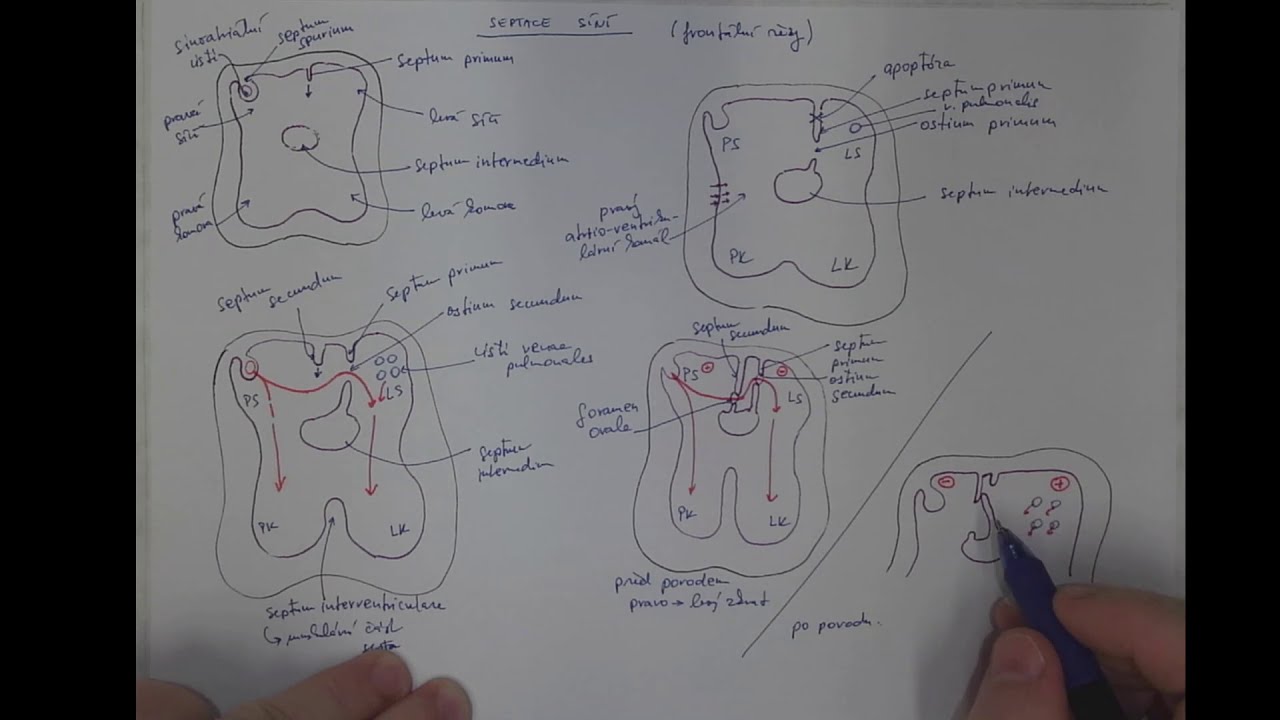 SEPTACE SÍNÍ (frontální řezy)
sinoatriální
ústí
septum
spurium
septum primum
pravá
síň
levá síň
septum intermedium
pravá
komora
levá komora
apoptóza
septum primum
v. pulmonalis
ostium primum
PS
LS
septum intermedium
pravý
atrio-ventriku-
lární kanál
PK
LK
septum
secundum
septum primum
ostium secundum
ústí venae
pulmonales
PS
LS
septum
intermedium
PK
LK
septum interventriculare
↳ muskulární část
septa
septum
secundum
septum
primum
ostium
secundum
PS
LS
foramen
ovale
PK
LK
před porodem
pravo → levý zkrat
po porodu.